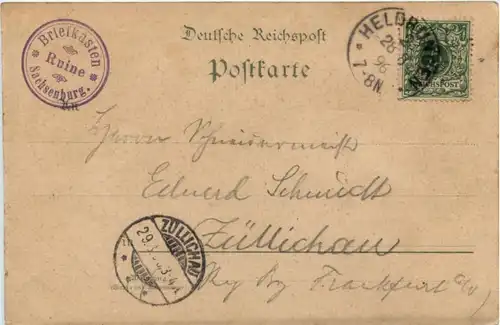 Briefkasten
Ruine
Sachsenburg.
Deutsche Reichspost
Postkarte
HELDRUNGEN
7-8N.
REICHSPOST
An
Herrn Schneidermeister
Eduard Schmidt
Züllichau
ZÜLLICHAU
Rg Bz Frankfurt a/O